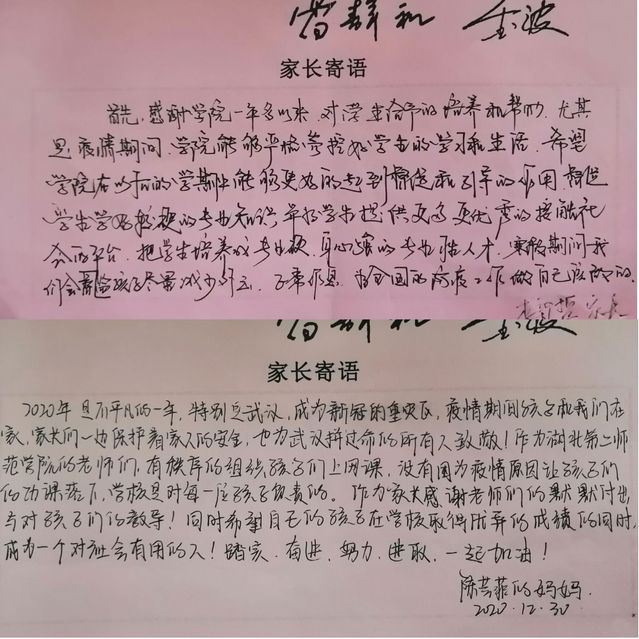 曾静和 金波
家长寄语
首先,感谢学院一年多以来,对学生给予的培养和帮助,尤其
是疫情期间,学院能够严格管控好学生的学习和生活。希望
学院在以后的学期里能够更好的起到督促和引导的作用,督促
学生学好过硬的专业知识,并给学生提供更多更优秀的接触社
会的平台,把学生培养成专业硬,身心强的专业人才,寒假期间我
们会督促孩子尽量减少外出,不聚集,为全国的防疫工作做自己应做的。
家长
家长寄语
2020年是不平凡的一年,特别是武汉,成为新冠的重灾区,疫情期间孩子和我们在
家,家人们一边保护着家人的安全,也为武汉拼过命的所有人致敬!作为湖北第二师
范学院的老师们,有秩序的组织孩子们上网课,没有因为疫情原因让孩子们
的功课落下,学校是对每一届孩子负责的。作为家长感谢老师们的默默付出
与对孩子们的教导!同时希望自己的孩子在学校取得优异的成绩的同时,
成为一个对社会有用的人!踏实、奋进、努力、进取,一起加油!
陈芸菲的妈妈.
2020.12.30